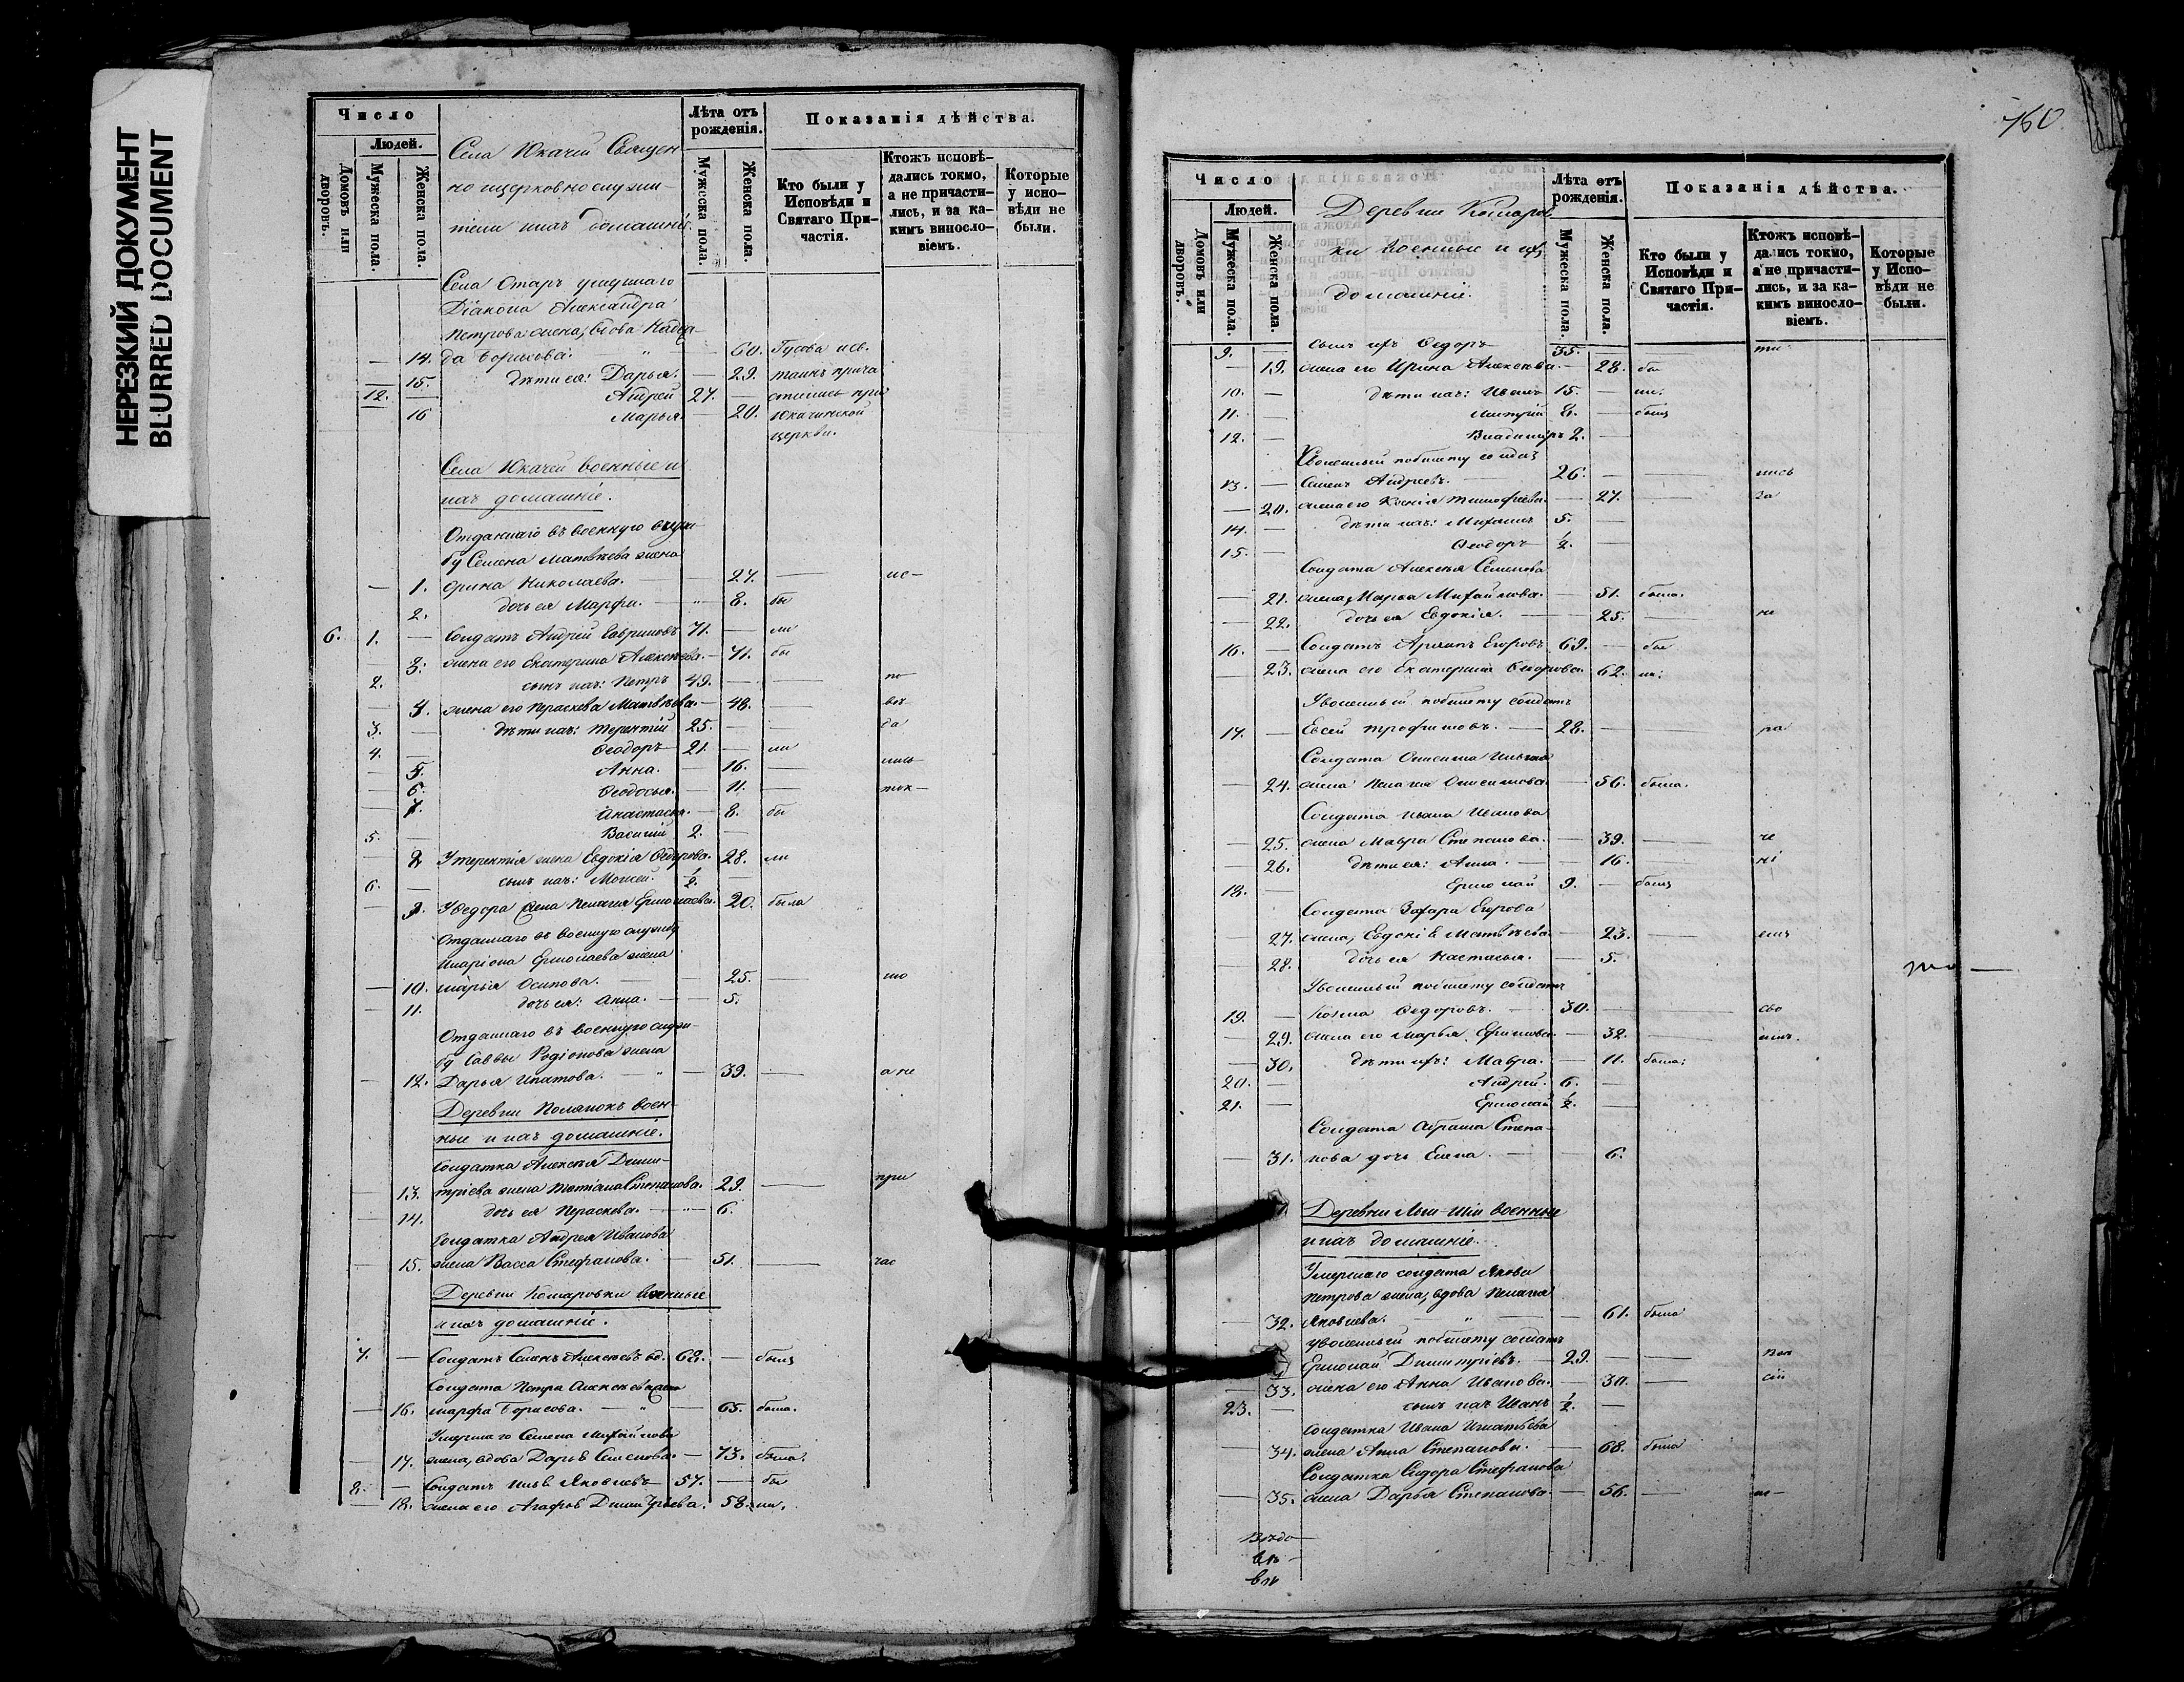 НЕРЕЗКИЙ ДОКУМЕНТ
BLURRED DOCUMENT
Число
Людей.
Домовъ или дворовъ.
Мужеска пола.
Женска пола.
Села Юкачей Священ-
но и церковнослужи-
тели и ихъ домашніе.
Лѣта отъ рожденія.
Мужеска пола.
Женска пола.
Показанія дѣйства.
Кто были у Исповѣди и Святаго При-частія.
Ктожъ исповѣ-дались токмо, а не причасти-лись, и за ка-кимъ винословіемъ.
Которые у испо-вѣди не были.
Села Отаръ умершаго
Діакона Александра
Петрова жена, вдова Надеж-
— 14. да Борисова. " — 60. исв.
— 15. дѣти ея: Дарья. — 29. таинъ прича
12. — Андрей 27. — стились при
16 Марья. — 20. Юкачинской
церкви.
Села Юкачей военные и
ихъ домашніе.
Отданнаго въ военную служ-
бу Семена Матвѣева жена
— 1. Ирина Николаева. 27. — ис-
2. дочь ея Марфа. — " 8. бы
6. 1. — Солдатъ Андрей Гавриловъ 71. — ли
— 3. жена его Екатерина Алексѣева. — 71. бы
2. сынъ ихъ: Петръ 49. — — по
— 4. жена его Параскева Матвѣева. — 48. — вѣ
3. — дѣти ихъ: Терентій 25. — — да
4. — Ѳеодоръ 21. — ли
— 5. Анна. — 16. — лись
— 6. Ѳеодосья. — 11. — ток-
— 7. Анастасья. — 8. бы
5. — Василій 2. —
— 8 У Терентія жена Евдокія Ѳедорова. 28. ли
6. — сынъ ихъ: Моисей. ½. —
— 9. У Ѳедора жена Пелагея Ермолаева. 20. была
Отданнаго въ военную службу
Иларіона Ермолаева жена
— 10. Марья Осипова. — 25. — мо
11. дочь ея: Анна. — 5.
Отданнаго въ военную служ-
бу Саввы Родіонова жена
— 12. Дарья Ипатова. — " — 39. — а не
Деревни Полянокъ воен-
ные и ихъ домашніе.
Солдатка Алексѣя Дими-
— 13. тріева жена Татіана Степанова. 29. — при
— 14. дочь ея Параскева. — " 6.
Солдатка Андрея Иванова
— 15. жена Васса Стефанова. 51. — час
Деревни Комаровки военные
и ихъ домашніе.
7. — Солдатъ Семенъ Алексѣевъ вд. 68. — былъ
Солдата Петра Алексѣева жена
— 16. Марфа Борисова. — " — 65. была.
Умершаго Семена Михайлова
— 17. жена, вдова Дарья Семенова. — 73. была.
8. — Солдатъ Яковлевъ 57. — бы
— 18. жена его Агафья Димитріева. 58. ли.
760
Число
Людей.
Домовъ или дворовъ.
Мужеска пола.
Женска пола.
Деревни Комаров-
ки военные и ихъ
домашніе.
Лѣта отъ рожденія.
Мужеска пола.
Женска пола.
Показанія дѣйства.
Кто были у Исповѣди и Святаго При-частія.
Ктожъ исповѣ-дались токмо, а не причасти-лись, и за ка-кимъ винословіемъ.
Которые у Испо-вѣди не были.
9. — сынъ ихъ Ѳедоръ 35. — ти
— 19. жена его Ирина Алексѣева. — 28. бы
10. — дѣти ихъ: Иванъ 15. — ли.
11. — Митрій 8. — былъ
12. — Владиміръ 2. —
Уволенный по билету солдатъ
13. — Семенъ Андреевъ. — 26. — — лись
— 20. жена его Ксенія Тимофѣева. — 27. — за
14. — дѣти ихъ: Михаилъ 5. —
15. — Ѳеодоръ ½. —
Солдата Алексѣя Семенова
— 21. жена Марья Михайлова. — 51. была.
— 22. дочь ея Евдокія. — 25. — не
16. — Солдатъ Архипъ Егоровъ 69. — бы
— 23. жена его Екатерина Ѳедорова. 62. ли.
Уволенный по билету солдатъ
17. — Евсей Трофимовъ. — 28. — ра
Солдата Онисима Ильина
— 24. жена Пелагея Онисимова. — 56. была.
Солдата Ивана Иванова
— 25. жена Мавра Степанова. — 39. — че
— 26. дѣти ея: Анна. — 16. — ні
18. — Ермолай 9. — былъ
Солдата Захара Егорова
— 27. жена, Евдокія Матвѣева. — 23. — емъ
— 28. дочь ея Настасья. — 5.
Уволенный по билету солдатъ
19. — Козма Ѳедоровъ. — 30. — — сво
— 29. жена его Марья Ефимова. — 32. — имъ.
— 30. дѣти ихъ: Мавра. — 11. была:
20. — Андрей. 6. —
21. — Ермолай ½. —
Солдата Абрама Степа-
— 31. нова дочь Елена. — 6.
военные
и ихъ домашніе.
Умершаго солдата Якова
Петрова жена, вдова Пелагея
— 32. Яковлева. " — 61. была
Уволенный по билету солдатъ
Ермолай Димитріевъ. — 29. — —
— 33. жена его Анна Иванова. — 30. —
23. — сынъ ихъ Иванъ ½. —
Солдатка Ивана Игнатьева
— 34. жена Анна Степанова. — 68. была
Солдатка Сидора Стефанова
— 35. жена Дарья Степанова. — 56. —